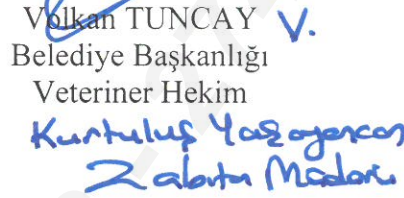 Volkan TUNCAY V.
Belediye Başkanlığı
Veteriner Hekim
Kurtuluş
Zabıta Müdürü